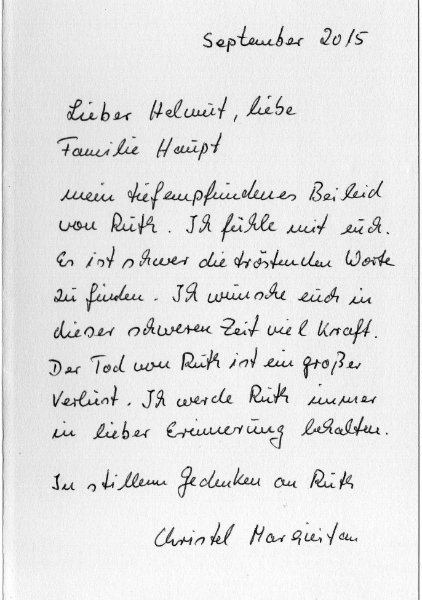 September 2015
Lieber Helmut, liebe
Familie Haupt
mein tiefempfundenes Beileid
von Ruth. Ich fühle mit euch.
Es ist schwer die tröstenden Worte
zu finden. Ich wünsche euch in
dieser schweren Zeit viel Kraft.
Der Tod von Ruth ist ein großer
Verlust. Ich werde Ruth immer
in lieber Erinnerung behalten.
In stillem Gedenken an Ruth
Christel